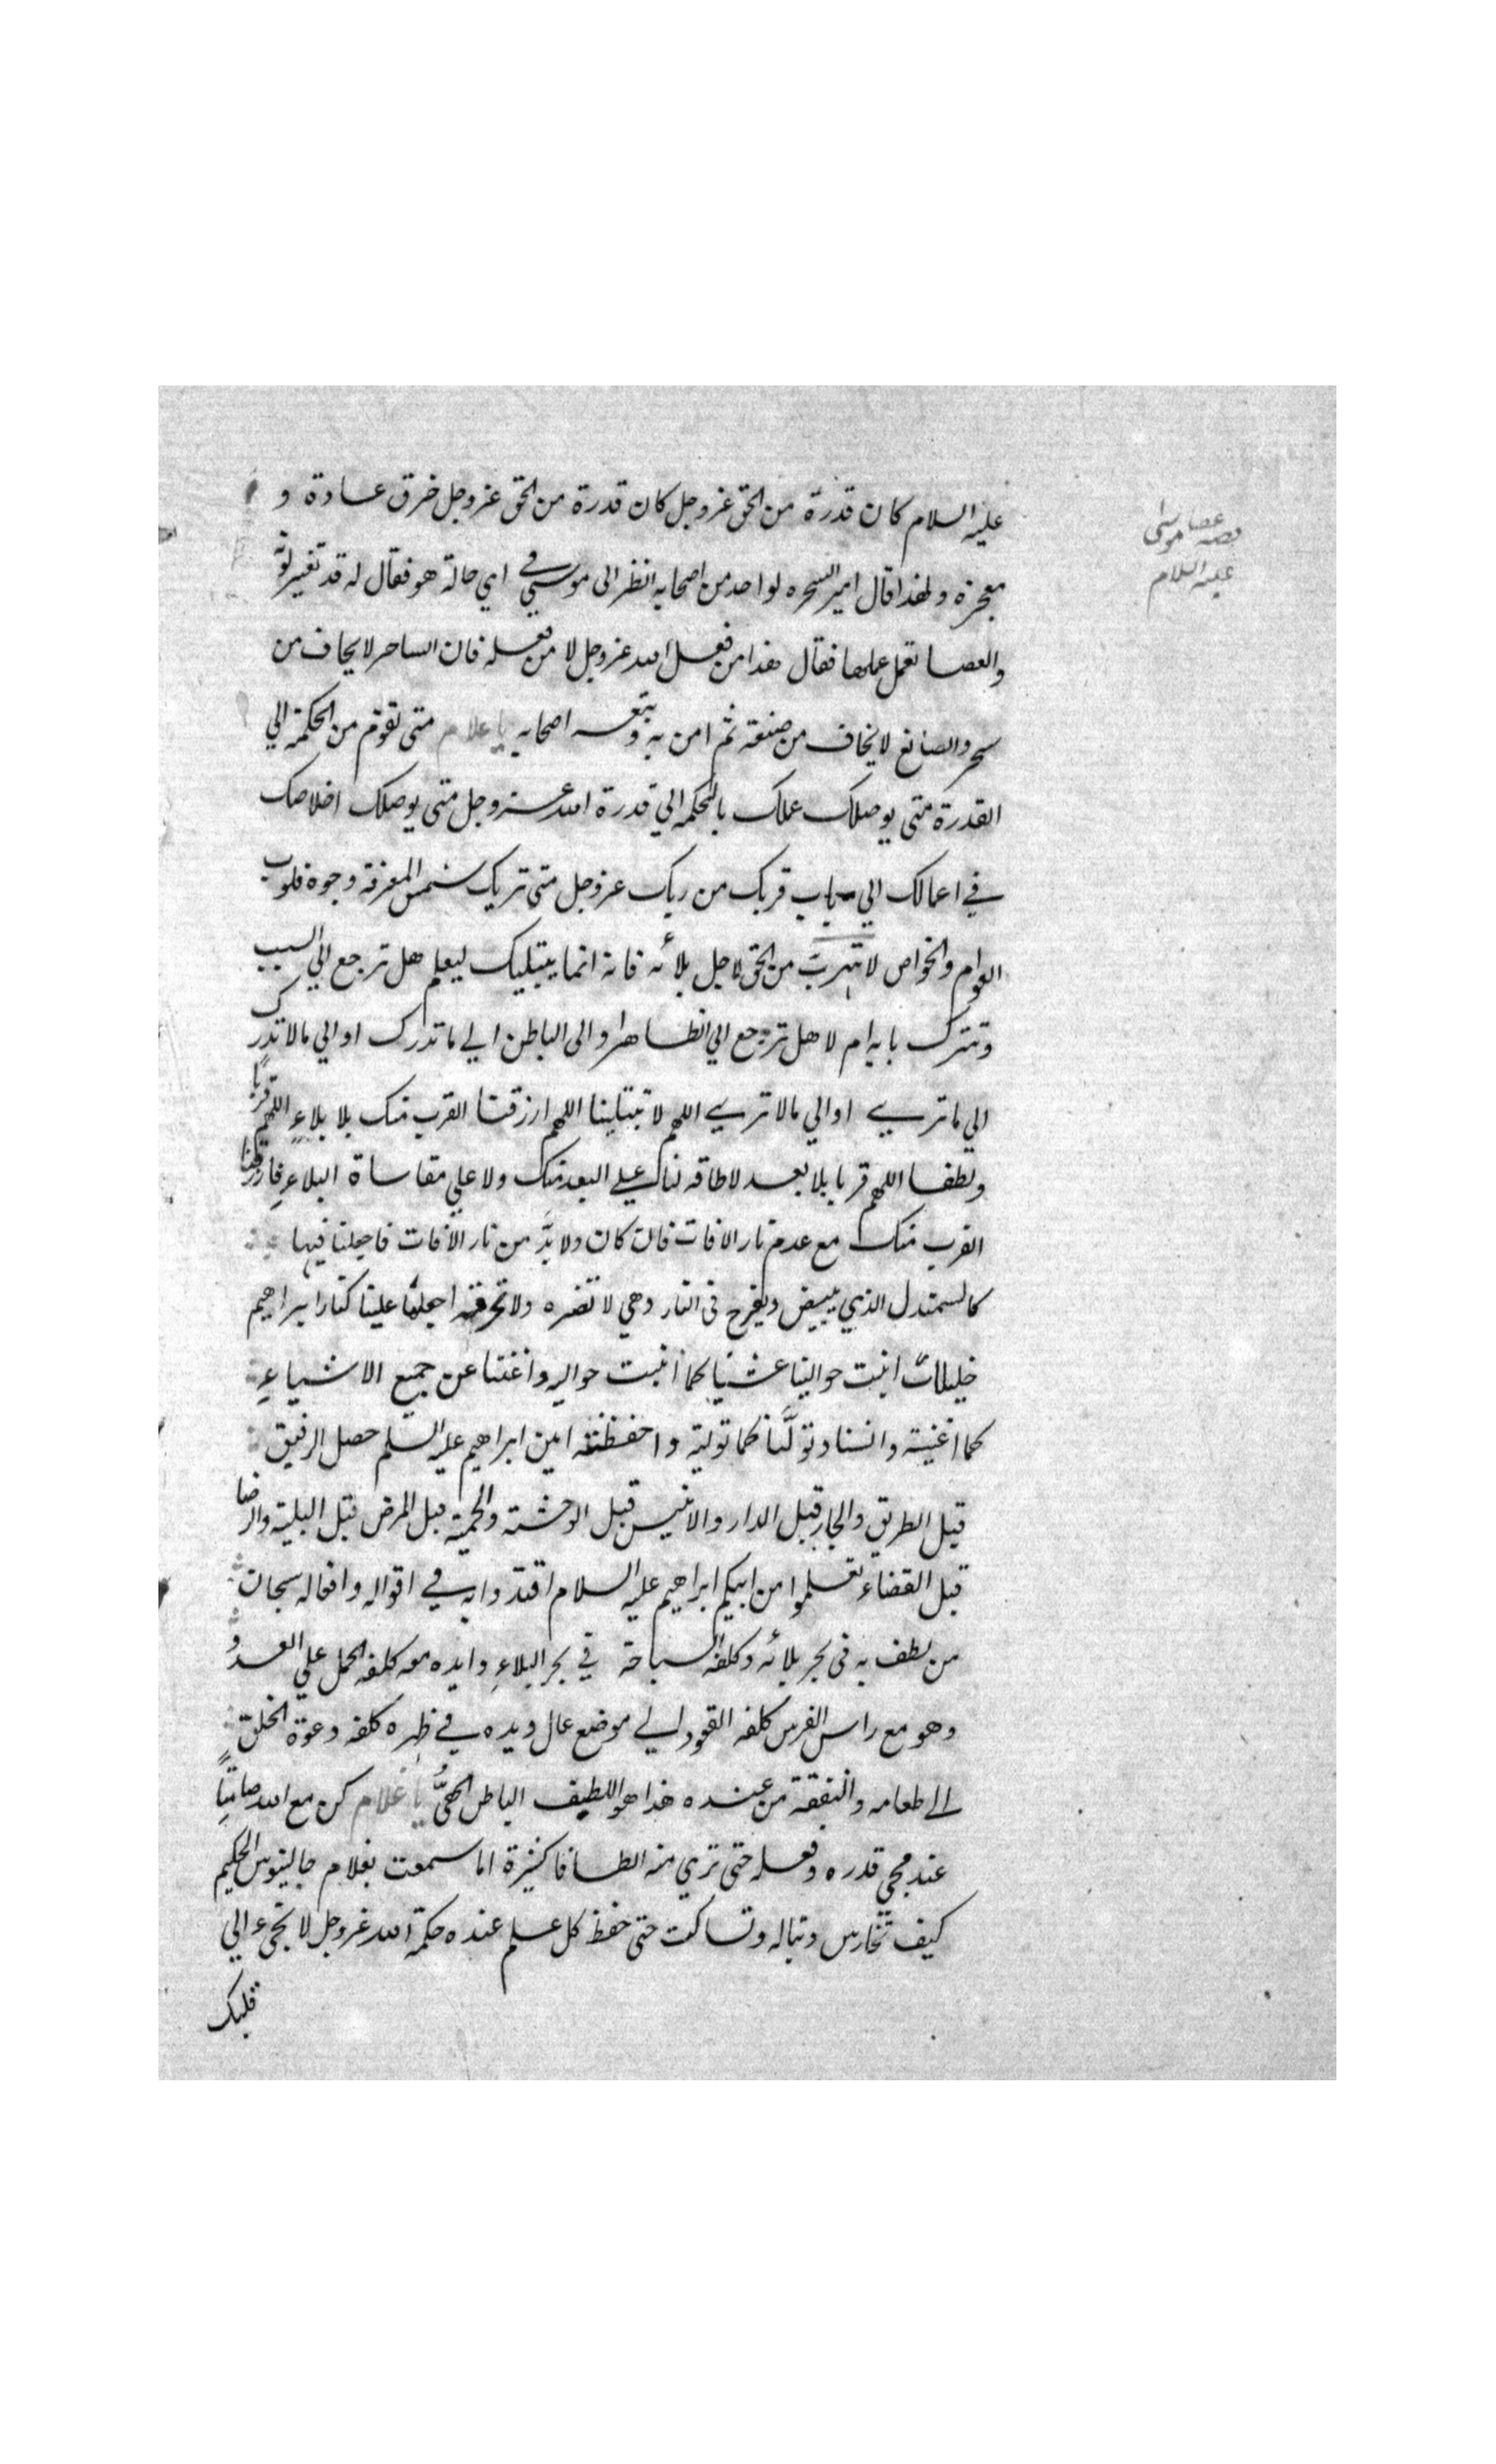 قصه عصا موسى
عليه السلام
عليه السلام كان قدرة من الحق عزوجل كان قدرة من الحق عزوجل خرق عادة و
معجزة ولهذا قال امير السحره لواحد من اصحابه انظر الى موسي في اي حالة هو فقال له قد تغير لونه
والعصا تعمل عملها فقال هذا من فعل الله عزوجل لا من فعله فان الساحر لا يخاف من
سحره والصانع لا يخاف من صنعته ثم امن به وتبعه اصحابه يا غلام متى تقوم من الحكمة الي
القدرة متى يوصلك عملك بالحكمه الي قدرة الله عزوجل متى يوصلك اخلاصك
في اعمالك الي باب قربك من ربك عزوجل متى تريك شمس المعرفة وجوه قلوب
العوام والخواص لا تهرب من الحق لاجل بلائه فانه انما يبتليك ليعلم هل ترجع الي السبب
وتترك بابه ام لا هل ترجع الي الظاهر او الى الباطن الي ما تدرك او الي مالا تدرك
الي ما ترى او الي مالا تري اللهم لا تبتلينا اللهم ارزقنا القرب منك بلا بلاء اللهم قربا
ولطفا اللهم قربا بلا بعد لا طاقه لنا علي البعد منك ولا علي مقاساة البلاء فارزقنا
القرب منك مع عدم نار الافات فان كان ولا بدّ من نار الافات فاجعلنا فيها
كالسمندل الذي يبيض ويفرخ فى النار وهي لا تضره ولا تحرقه اجعلها علينا كنار ابراهيم
خليلك انبت حوالينا عشبا كما انبت حواليه واغننا عن جميع الاشياء
كما اغنيته وانسنا وتولّنا كما توليته واحفظنا امين ابراهيم عليه السلم حصل الرفيق
قبل الطريق والجار قبل الدار والانيس قبل الوحشة والحمية قبل المرض قبل البلية والرضا
قبل القضاء تعلموا من ابيكم ابراهيم عليه السلام اقتدوا به في اقواله وافعاله سبحان
من لطف به فى بحر بلائه وكلفه السباحة في بحر البلاء وايده معه كلفه الحمل علي العدو
وهو مع راس الفرس كلفه القعود الي موضع عال ويده في ظهره كلفه دعوة الخلق
الى طعامه والنفقة من عنده هذا هو اللطيف الباطن الخفيّ يا غلام كن مع الله صامتًا
عند مجي قدره وفعله حتى تري منه الطافا كثيرة اما سمعت بغلام جالينوس الحكيم
كيف تخارس وتباله وتساكت حتى حفظ كل علم عنده حكمة الله عزوجل لا تجيء الي
قلبك